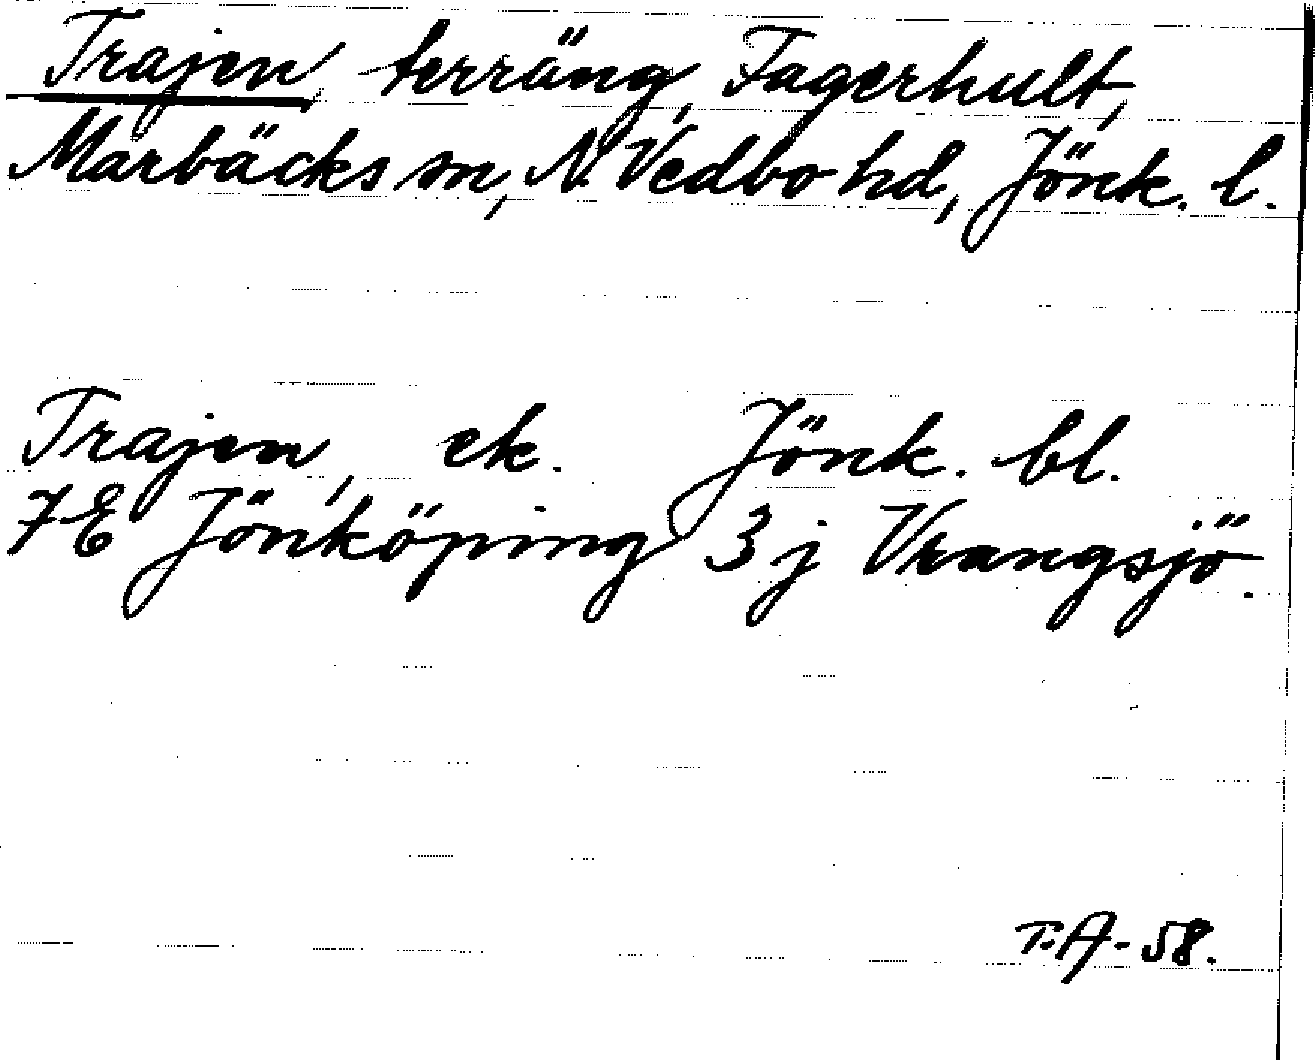 Trajen, terräng, Fagerhult,
Marbäcks sn, N. Vedbo hd, Jönk. l.
Trajen, ek. Jönk. bl.
7E Jönköping 3j Vrangsjö.
T.A-58.